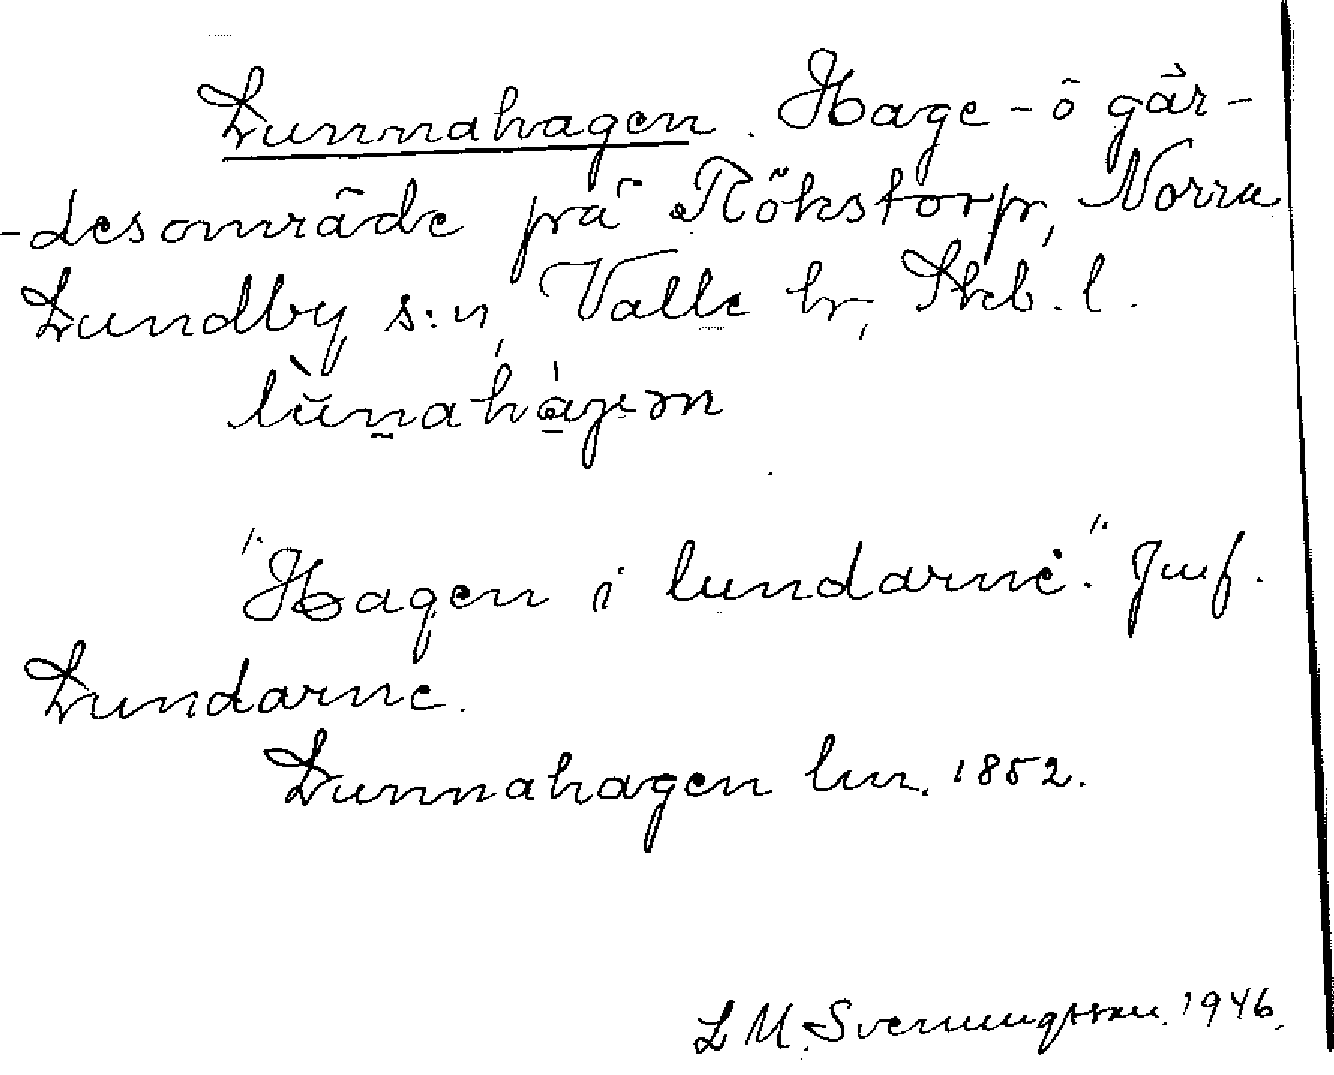 Lunnahagen. Hage- ö går-
-desområde på Rökstorp, Norra
Lundby s:n, Valle hr, Skb. l.
lùnahágən
"Hagen i lundarne." Jmf.
Lundarne.
Lunnahagen lm. 1852.
L M. Svenungsson. 1946.